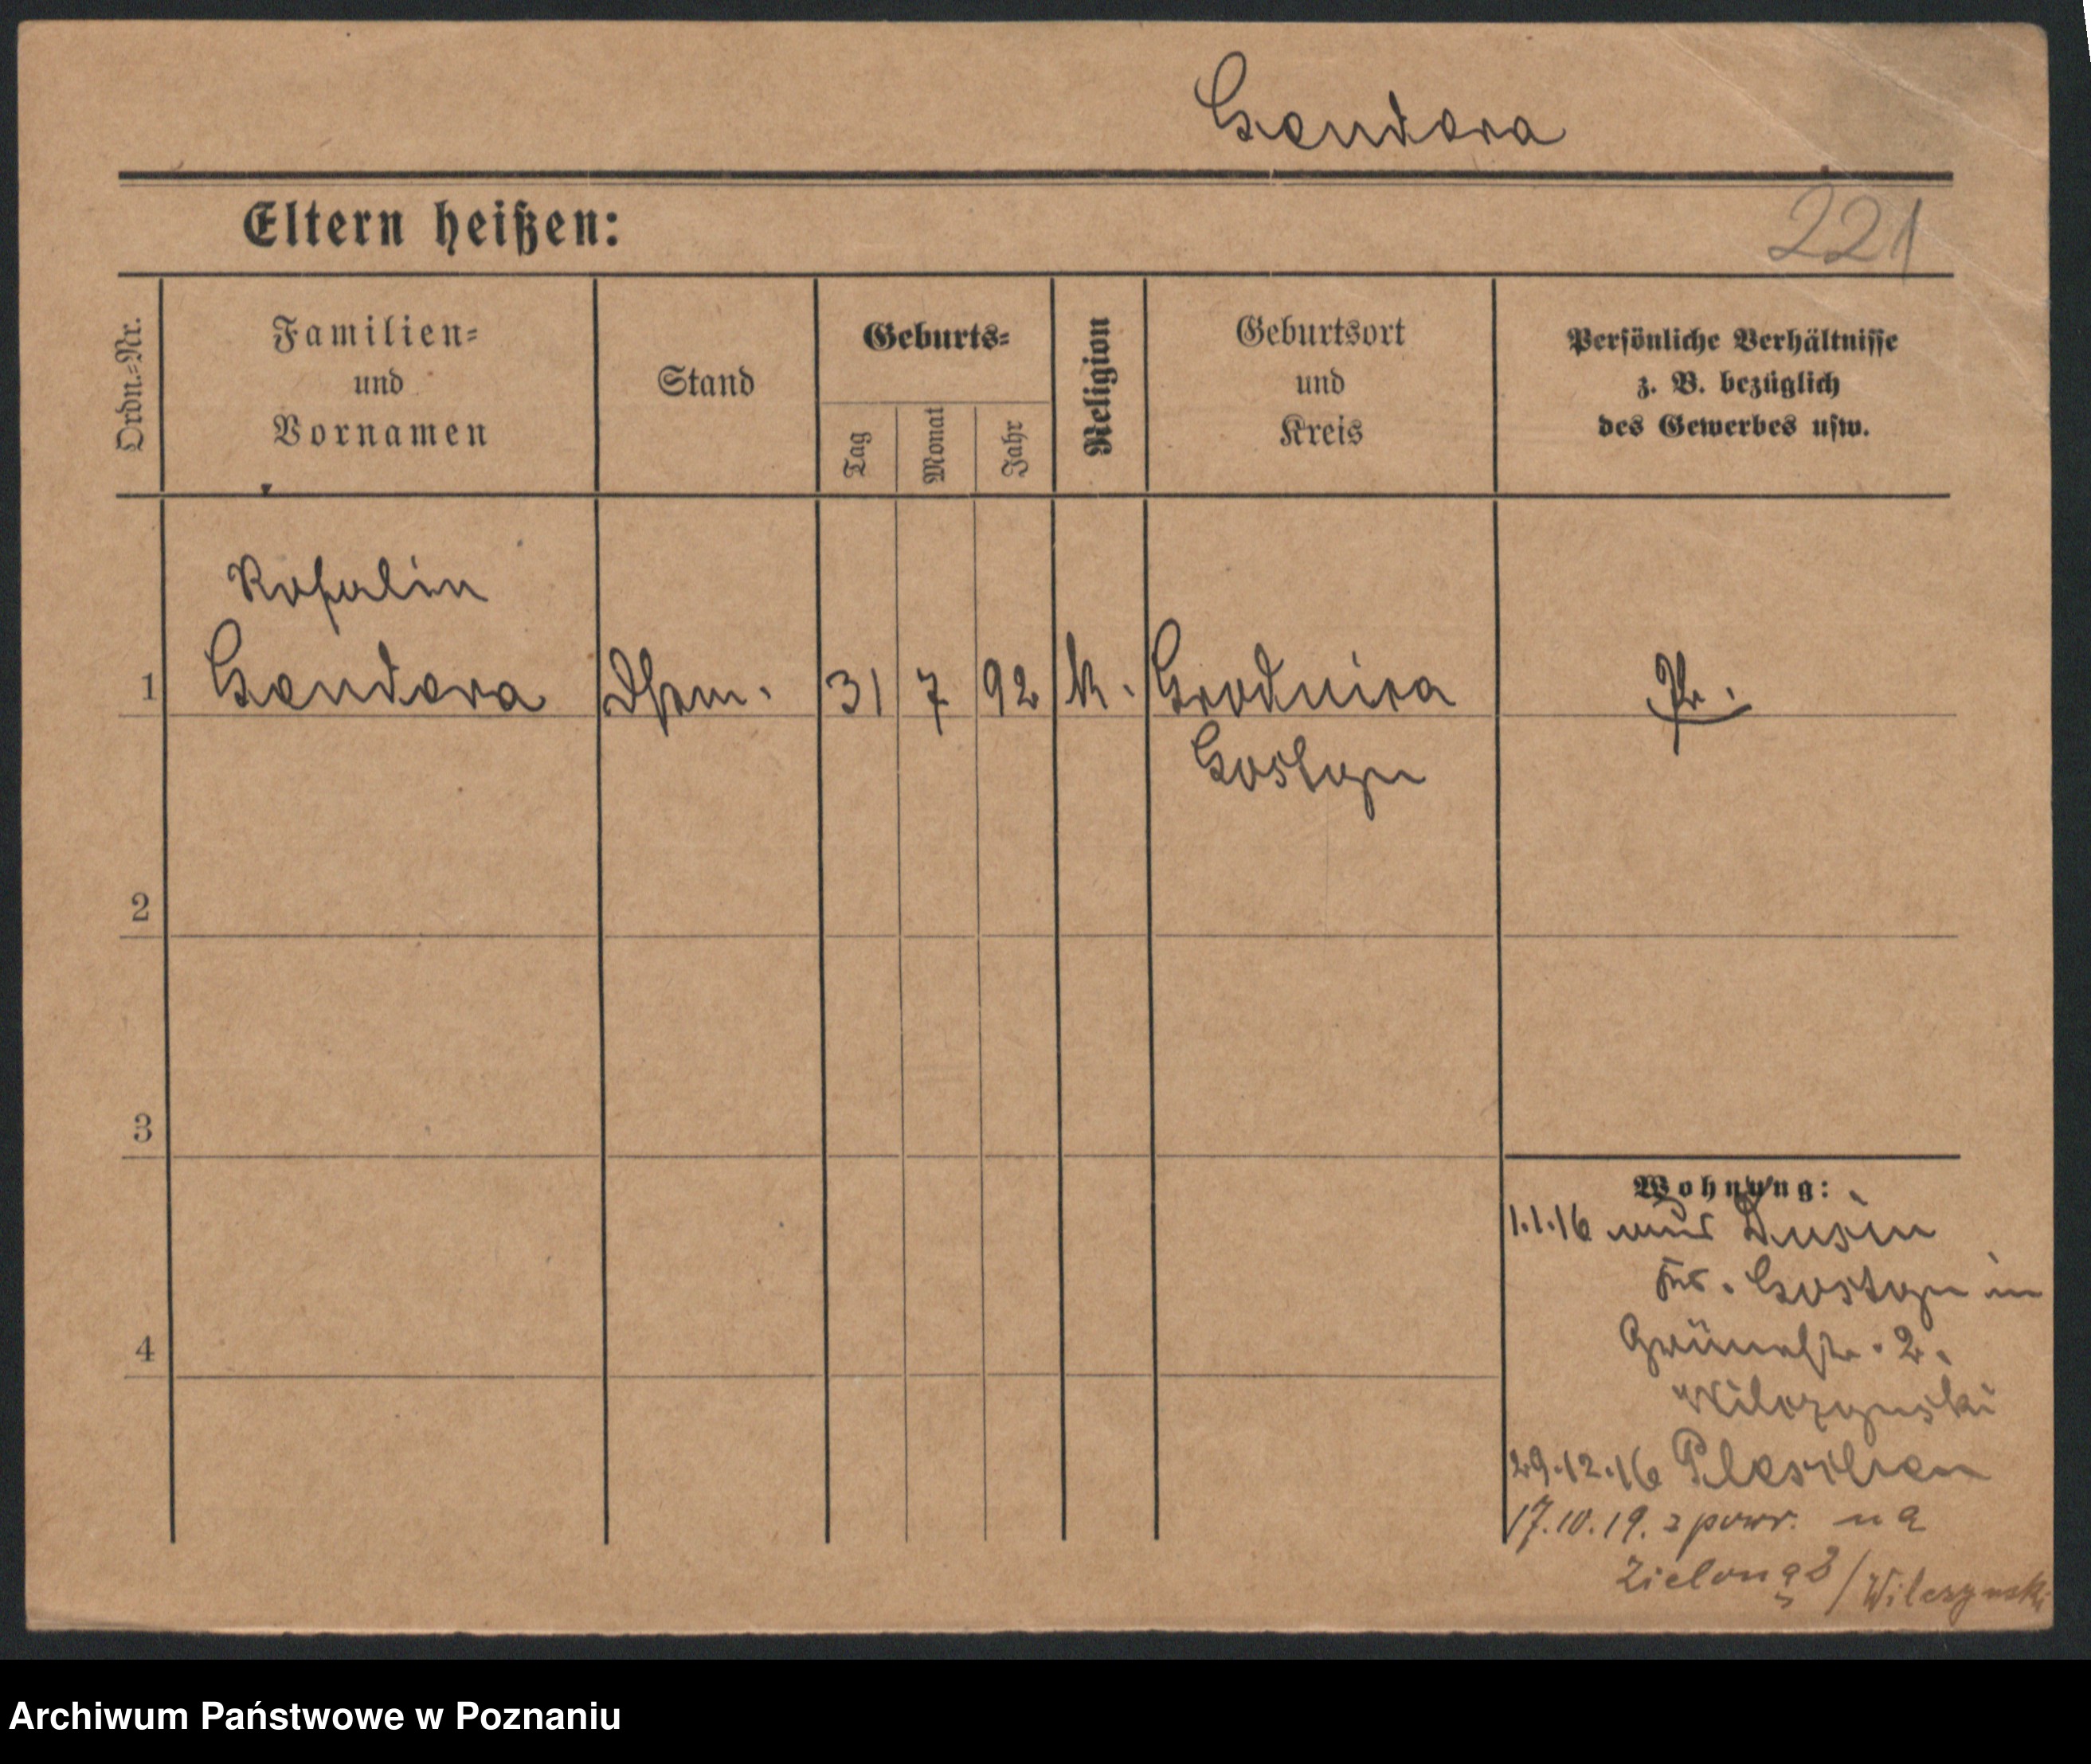 Gendera
Eltern heißen:
221
Ordn.=Nr.
Familien=
und
Vornamen
Stand
Geburts=
Tag
Monat
Jahr
Religion
Geburtsort
und
Kreis
Persönliche Verhältnisse
z. B. bezüglich
des Gewerbes usw.
Rosalie
1 Gendera 31 7 92 k. Grodnica Pr.
Gostyn
2
3
4
Wohnung:
1.1.16 aus Dusin
Krs. Gostyn in
Grünestr. 2.
Wilczynski
29.12.16 Pleschen
17.10.19. z powr. na
Zieloną 2 / Wilczynski
Archiwum Państwowe w Poznaniu